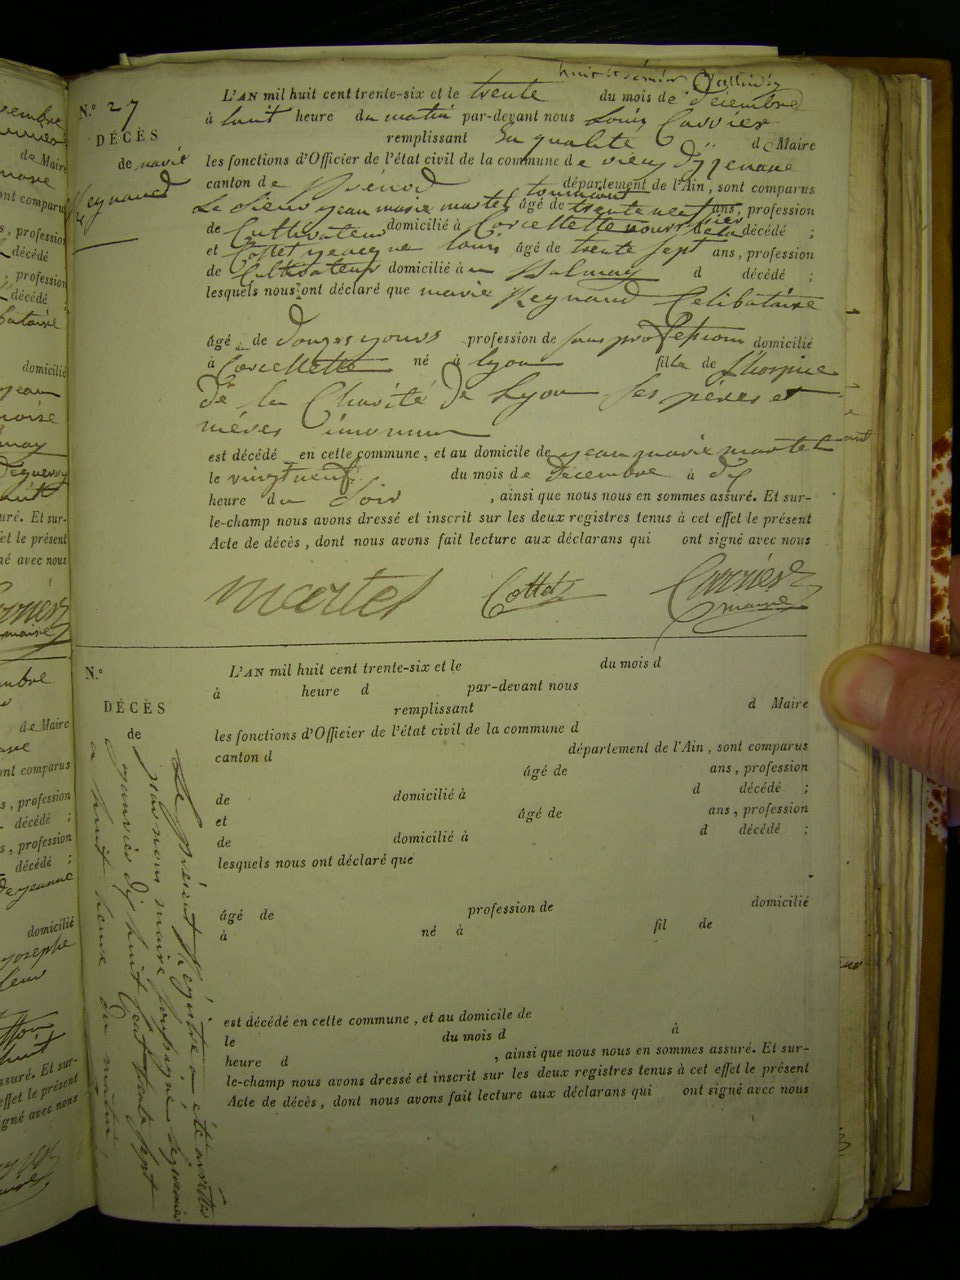 huit et dernier
N.° 27
DÉCÈS
de marie
Reynaud
L'AN mil huit cent trente-six et le trente du mois de décembre
à huit heure du matin par-devant nous Louis Carrier
remplissant en qualité de Maire
les fonctions d'Officier de l'état civil de la commune de vieu d'izenave
canton de Brénod département de l'Ain, sont comparus
Le sieur jean marie martel âgé de trente neuf ans, profession
de Cultivateur domicilié à Corcellette nourrisier de la décédé ;
et Cottet jacque louis âgé de trente sept ans, profession
de Cultivateur domicilié à Balmay d décédé ;
lesquels nous ont déclaré que marie Reynaud Célibataire
âgé de douzes jours profession de sans profession domicilié
à Corcellette né à lyon fille de l'hospice
de la Charité de Lyon ses pères et
mères inconnu
est décédé en cette commune, et au domicile de jean marie martel
le vingt neuf du mois de décembre à dix
heure du soir , ainsi que nous nous en sommes assuré. Et sur-
le-champ nous avons dressé et inscrit sur les deux registres tenus à cet effet le présent
Acte de décès, dont nous avons fait lecture aux déclarans qui ont signé avec nous
martel Cottet Carrier
maire
N.°
DÉCÈS
de
L'AN mil huit cent trente-six et le du mois d
à heure d par-devant nous
remplissant d Maire
les fonctions d'Officier de l'état civil de la commune d
canton d département de l'Ain, sont comparus
âgé de ans, profession
de domicilié à d décédé ;
et âgé de ans, profession
de domicilié à d décédé ;
lesquels nous ont déclaré que
âgé de profession de domicilié
à né à fil de
est décédé en cette commune, et au domicile de
le du mois d à
heure d , ainsi que nous nous en sommes assuré. Et sur-
le-champ nous avons dressé et inscrit sur les deux registres tenus à cet effet le présent
Acte de décès, dont nous avons fait lecture aux déclarans qui ont signé avec nous
Le présent Régistre a été arrêté
par nous maire soussigné le premier
janvier dix huit Cent trente sept
a huit heure du matin